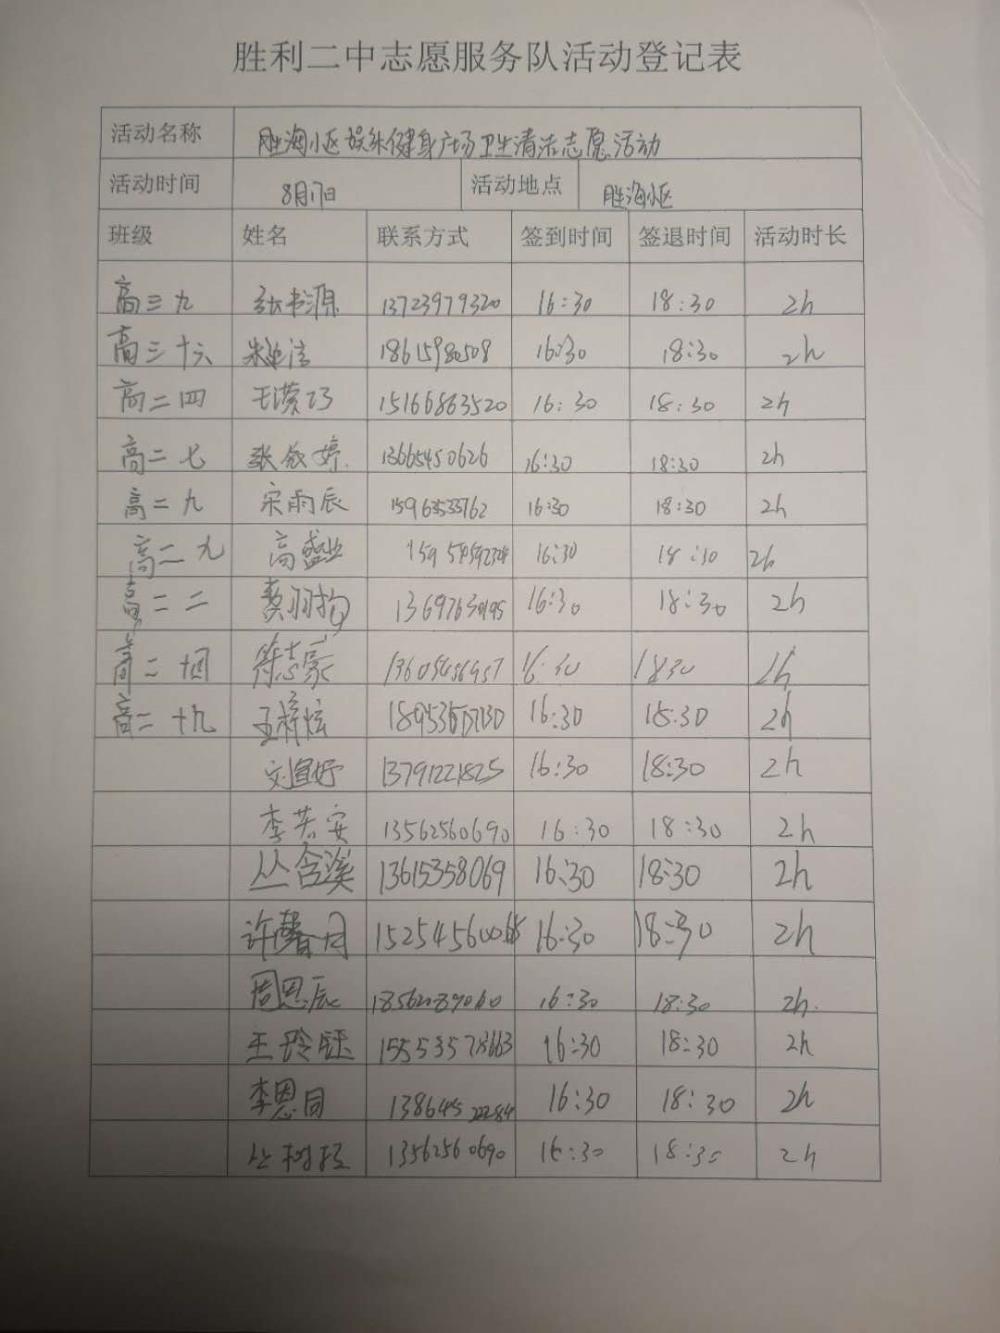 胜利二中志愿服务队活动登记表
活动名称 胜海小区娱乐健身广场卫生清洁志愿活动
活动时间 8月17日 活动地点 胜海小区
班级 姓名 联系方式 签到时间 签退时间 活动时长
高三九 张书源 13723979320 16:30 18:30 2h
高三十六 18615980508 16:30 18:30 2h
高二四 王滢巧 15166863520 16:30 18:30 2h
高二七 张敛婷 13665450626 16:30 18:30 2h
高二九 宋雨辰 15963533762 16:30 18:30 2h
高二九 高盛业 16:30 18:30 2h
高二二 16:30 18:30 2h
高二十四 徐志豪 16:30 18:30 2h
高二十九 王梓炫 16:30 18:30 2h
刘宜妤 13791221825 16:30 18:30 2h
李若安 13562560690 16:30 18:30 2h
丛含溪 13615358069 16:30 18:30 2h
许馨月 16:30 18:30 2h
周恩辰 16:30 18:30 2h.
王玲钰 16:30 18:30 2h
李恩同 16:30 18:30 2h
13562560690 16:30 18:30 2h